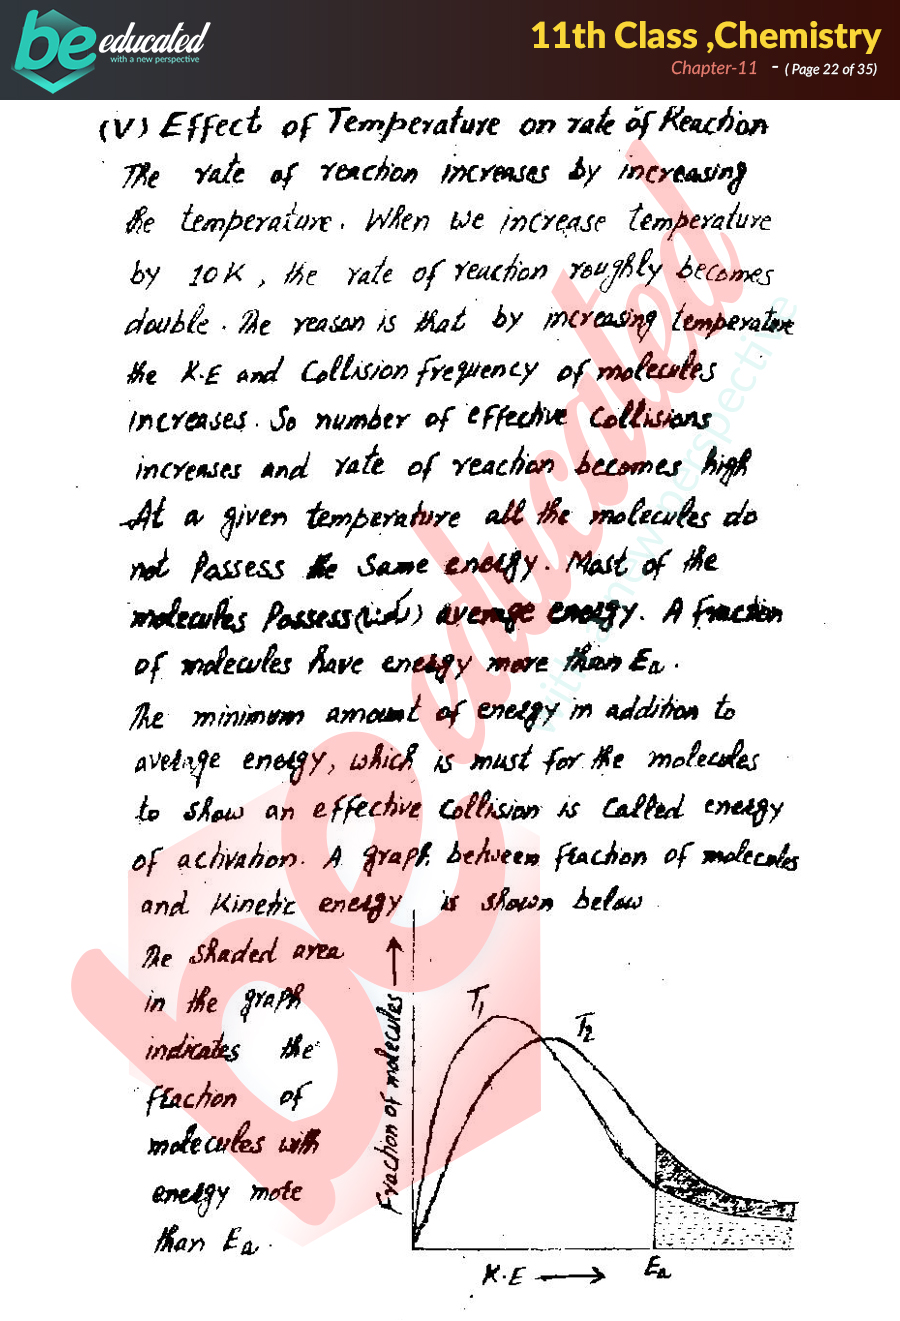 be educated
with a new perspective
11th Class ,Chemistry
Chapter-11 - ( Page 22 of 35)
(V) Effect of Temperature on rate of Reaction
The rate of reaction increases by increasing
the temperature. When we increase temperature
by 10K, the rate of reaction roughly becomes
double. The reason is that by increasing temperature
the K.E and Collision frequency of molecules
increases. So number of effective Collisions
increases and rate of reaction becomes high
At a given temperature all the molecules do
not Possess the Same energy. Most of the
molecules Possess average energy. A fraction
of molecules have energy more than Ea.
The minimum amount of energy in addition to
average energy, which is must for the molecules
to show an effective Collision is Called energy
of activation. A graph between fraction of molecules
and Kinetic energy is shown below
The shaded area
in the graph
indicates the
fraction of
molecules with
energy more
than Ea.
Fraction of molecules
T1
T2
K.E
Ea
be educated
with a new perspective